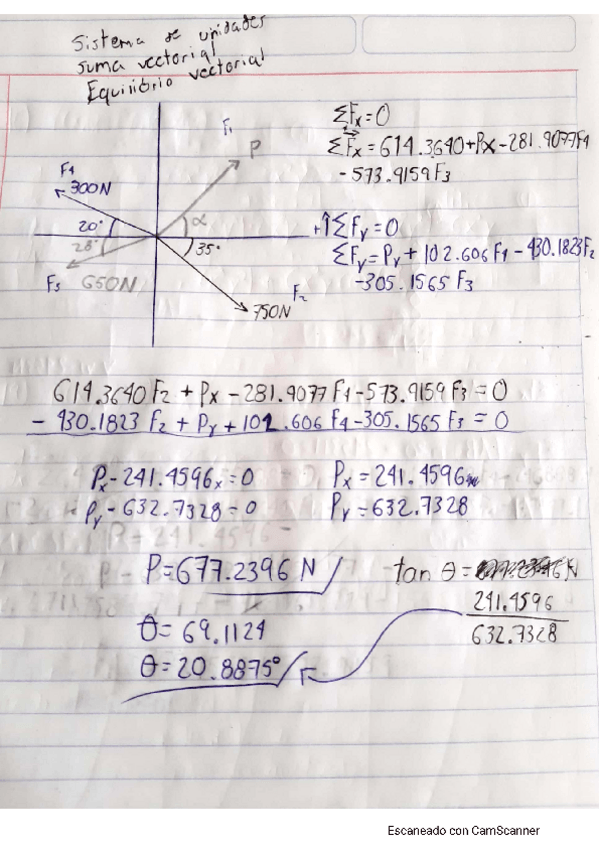 Sistema de unidades
suma vectorial
Equilibrio vectorial
F1
P
F4
300N
20°
28°
α
35°
F3 650N
F2
750N
ΣFx=0
ΣFx=614.3640+Px-281.9077F4
-573.9159F3
+↑ΣFy=0
ΣFy=Py+102.606F4-430.1823F2
-305.1565F3
614.3640F2+Px-281.9077F4-573.9159F3=0
-430.1823F2+Py+102.606F4-305.1565F3=0
Px-241.4596x=0
Px=241.4596
Py-632.7328=0
Py=632.7328
P=677.2396 N
tan θ=
241.4596
632.7328
θ=69.1124
θ=20.8875°
Escaneado con CamScanner